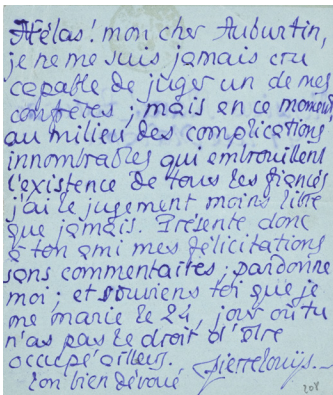 Hélas! mon cher Auburtin,
je ne me suis jamais cru
capable de juger un de mes
confrères; mais en ce moment
au milieu des complications
innombrables qui embrouillent
l'existence de tous les fiancés
j'ai le jugement moins libre
que jamais. Présente donc
à ton ami mes félicitations
sans commentaires; pardonne
moi; et souviens toi que je
me marie le 24, jour où tu
n'as pas le droit d'être
occupé ailleurs.
Ton bien dévoué Pierre Louÿs.
208